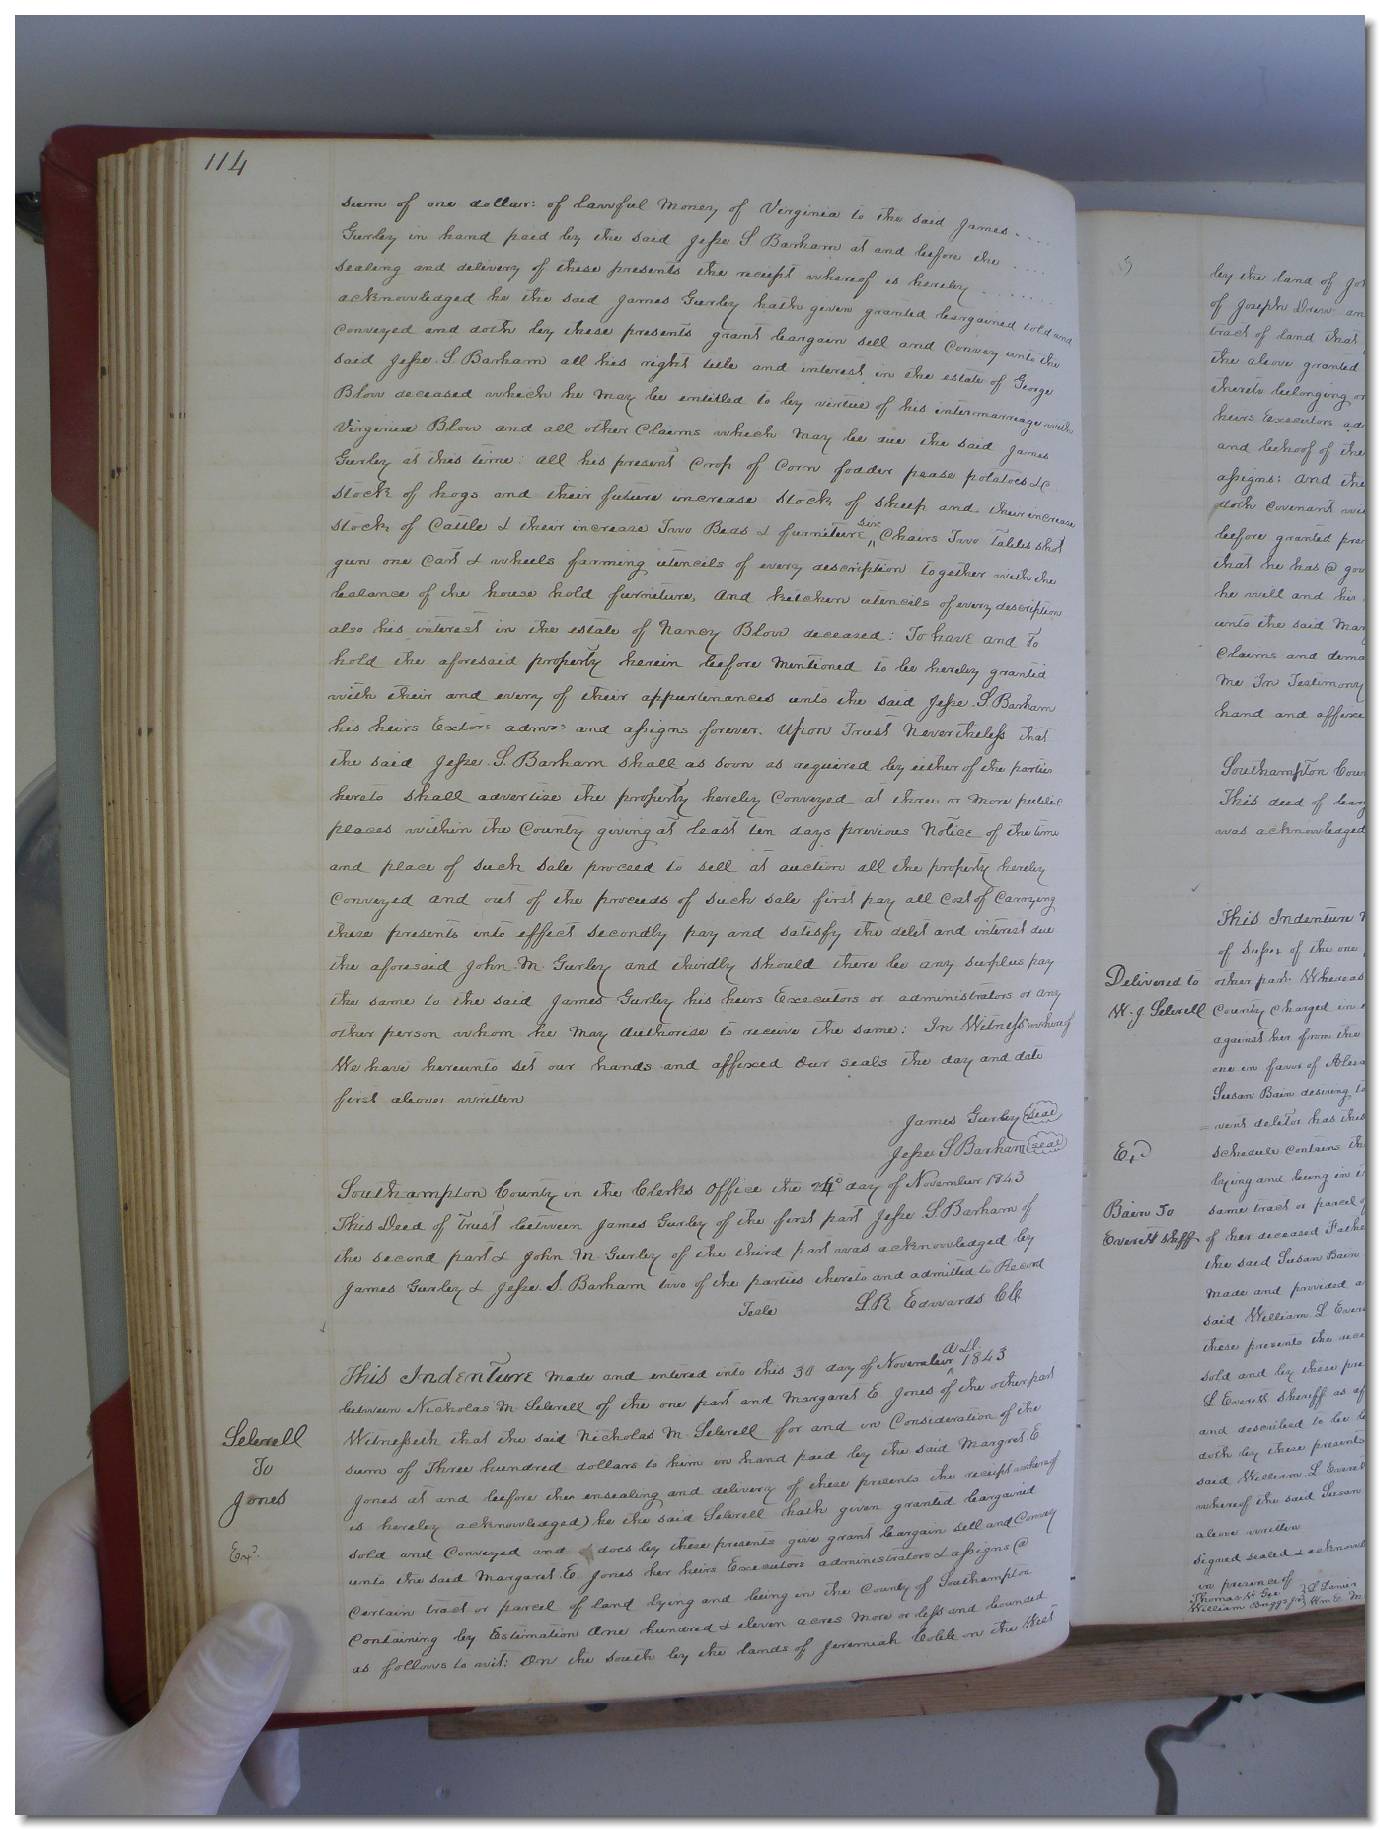 114
sum of one dollar: of lawful Money of Virginia to the said James
Gurley in hand paid by the said Jesse S Barham at and before the
sealing and delivery of these presents the receipt whereof is hereby
acknowledged he the said James Gurley hath given granted bargained sold and
conveyed and doth by these presents grant bargain sell and convey unto the
said Jesse S. Barham all his right title and interest in the estate of George
Blow deceased which he may be entitled to by virtue of his intermarriage with
Virginia Blow and all other Claims which May be due the said James
Gurley at this time: all his present Crop of Corn fodder pease potatoes &c
stock of hogs and their future increase stock of sheep and their increase
stock of Cattle & their increase Two Beds & furniture six Chairs Two Tables shot
gun one Cart & wheels farming utencils of every description together with the
balance of the house hold furniture, and kitchen utencils of every description
also his interest in the estate of Nancy Blow deceased: To have and To
hold the aforesaid property herein before Mentioned to be hereby granted
with their and every of their appurtenances unto the said Jesse S. Barham
his heirs Extors admrs and assigns forever. Upon Trust Nevertheless that
the said Jesse S. Barham shall as soon as required by either of the parties
hereto shall advertise the property hereby Conveyed at three or more public
places within the County giving at least ten days previous Notice of the time
and place of such sale proceed to sell at auction all the property hereby
Conveyed and out of the proceeds of such sale first pay all Cost of Carrying
these presents into effect secondly pay and satisfy the debt and interest due
the aforesaid John M. Gurley and thirdly should there be any surplus pay
the same to the said James Gurley his heirs Executors or administrators or any
other person whom he may authorise to receive the same: In Witness whereof
We have hereunto set our hands and affixed our seals the day and date
first above written
James Gurley seal
Jesse S Barham seal
Southampton County in the Clerks Office the 4 day of November 1843
This Deed of Trust between James Gurley of the first part Jesse S. Barham of
the second part & John M. Gurley of the third part was acknowledged by
James Gurley & Jesse S. Barham two of the parties thereto and admitted to Record
Teste L. R. Edwards Clk
This Indenture made and entered into this 30 day of November A D. 1843
between Nicholas M Sebrell of the one part and Margaret E Jones of the other part
Witnesseth that the said Nicholas M. Sebrell for and in Consideration of the
sum of Three hundred dollars to him in hand paid by the said Margret E
Jones at and before the ensealing and delivery of these presents the receipt whereof
is hereby acknowledged) he the said Sebrell hath given granted bargained
sold and Conveyed and does by these presents give grant bargain sell and Convey
unto the said Margaret E Jones her heirs Executors administrators & assigns @
Certain tract or parcel of land lying and being in the County of Southampton
Containing by Estimation One hundred & eleven acres More or less and bounded
as follows to wit: On the south by the lands of Jeremiah Cobb on the West
Sebrell
To
Jones
Exd.
by the land of
of Joseph Drew
tract of land that
the above granted
thereto belonging or
heirs Executors
and behoof of the
assigns: And the
doth Covenant
before granted
that he has @
he will and his
unto the said
Claims and
me In Testimony
hand and
Southampton
This deed of
was acknowledged
This Indenture
of of the one
other part. Whereas
County Charged in
against her from the
one in favor of
Susan Bain desiring
vent debtor has this
schedule Contains
lying and being in
same tract or parcel
of her deceased
the said Susan Bain
Made and provided
said William L
these presents the
sold and by these
L Everett Sheriff as
and described to be
doth by these presents
said William L
whereof the said Susan
above written
signed sealed &
in presence of
Thomas H Gee
William Briggs
Delivered to
W. J. Sebrell
Exd
Bain To
Everett Shff